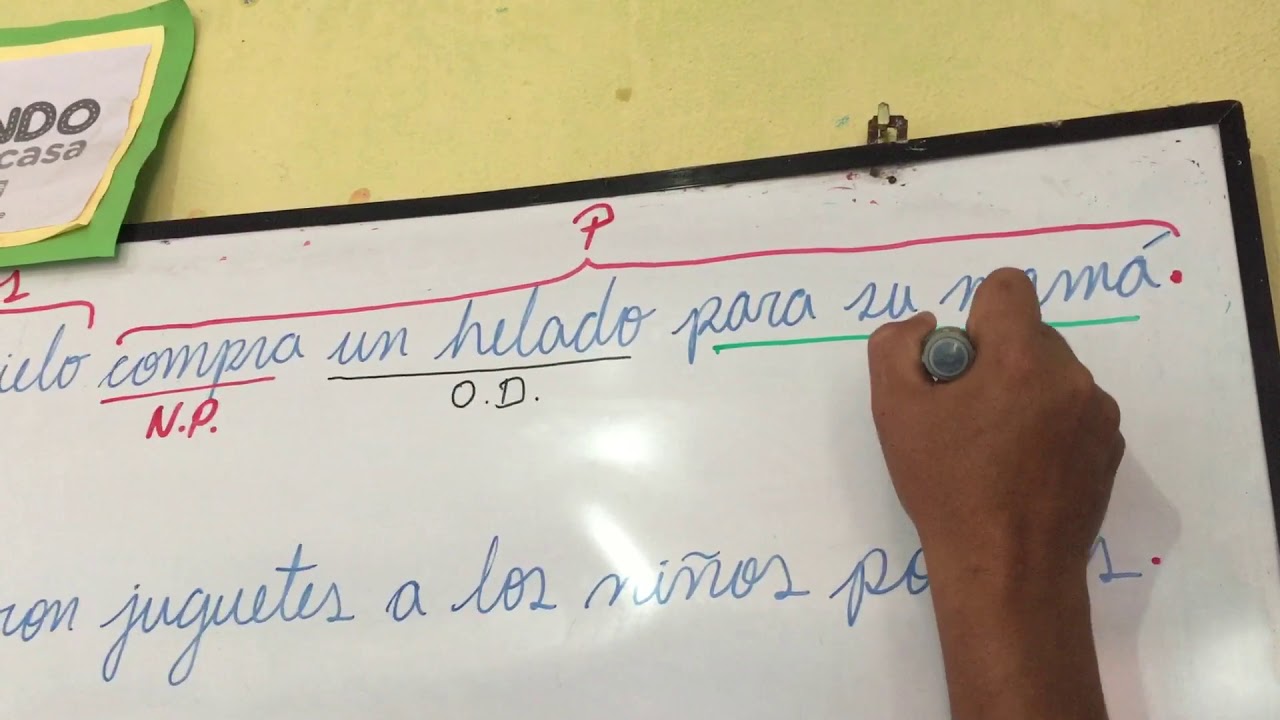 NDO
casa
P
compra un helado para su mamá.
N.P.
O.D.
juguetes a los niños